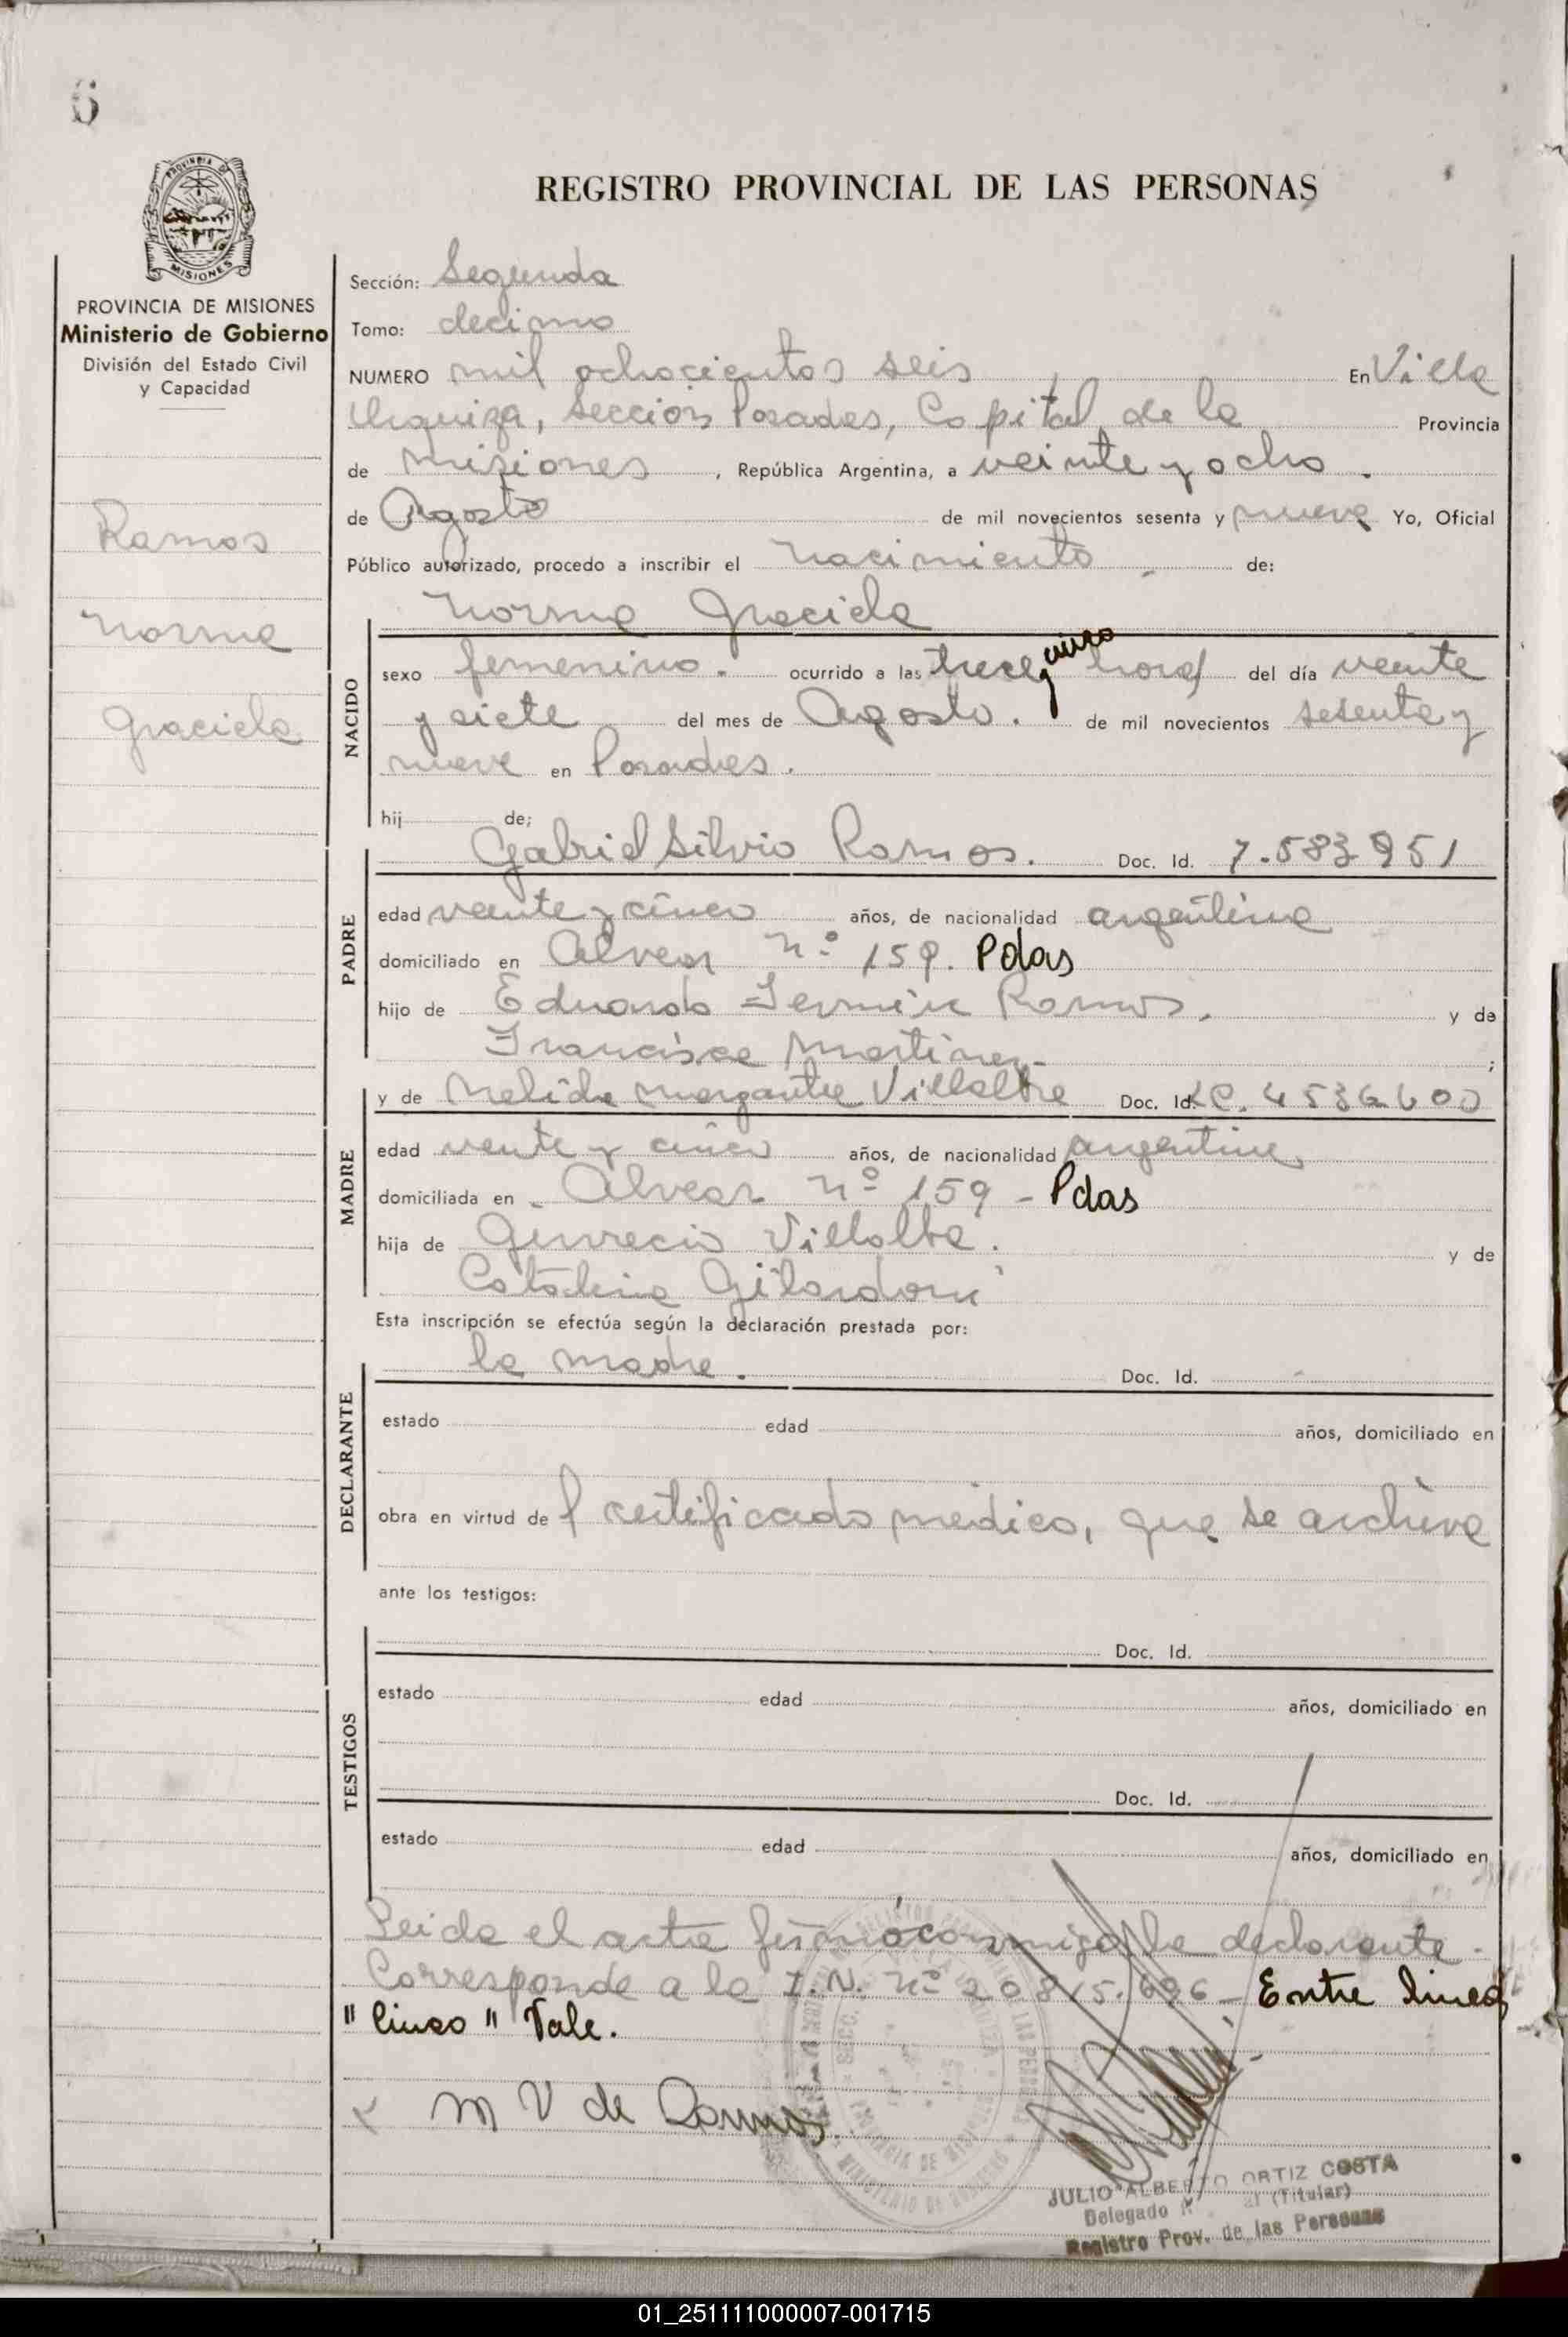 6
PROVINCIA DE
MISIONES
REGISTRO PROVINCIAL DE LAS PERSONAS
PROVINCIA DE MISIONES
Ministerio de Gobierno
División del Estado Civil
y Capacidad
Ramos
Norma
Graciela
Sección: Segunda
Tomo: decimo
NUMERO mil ochocientos seis En Villa
Urquiza, Seccion Posadas, Capital de la Provincia
de Misiones, República Argentina, a veinte y ocho.
de Agosto de mil novecientos sesenta y nueve Yo, Oficial
Público autorizado, procedo a inscribir el nacimiento de:
NACIDO
Norma Graciela
sexo femenino. ocurrido a las trece y cinco horas del día veinte
y siete del mes de Agosto. de mil novecientos sesenta y
nueve en Posadas.
hij de;
PADRE
Gabriel Silvio Ramos. Doc. Id. 7.583951
edad veinte y cinco años, de nacionalidad argentina
domiciliado en Alvear nº 159. Pdas
hijo de Eduardo Fermín Ramos, y de
Francisca Martinez- ;
MADRE
y de Nelida Margarita Villalba Doc. Id. LC. 4536600
edad veinte y cinco años, de nacionalidad argentina
domiciliada en Alvear nº 159 - Pdas
hija de Villalba. y de
Catalina Gilardoni
Esta inscripción se efectúa según la declaración prestada por:
DECLARANTE
la madre. Doc. Id.
estado edad años, domiciliado en
obra en virtud de l certificado medico, que se archiva
ante los testigos:
TESTIGOS
Doc. Id.
estado edad años, domiciliado en
Doc. Id.
estado edad años, domiciliado en
Leida el acta firmó conmigo la declarante.
Corresponde a la I.N. nº 20815.696 - Entre linea
"cinco" Vale.
M V de Ramos
JULIO ALBERTO ORTIZ COSTA
Delegado (Titular)
Registro Prov. de las Personas
01_251111000007-001715